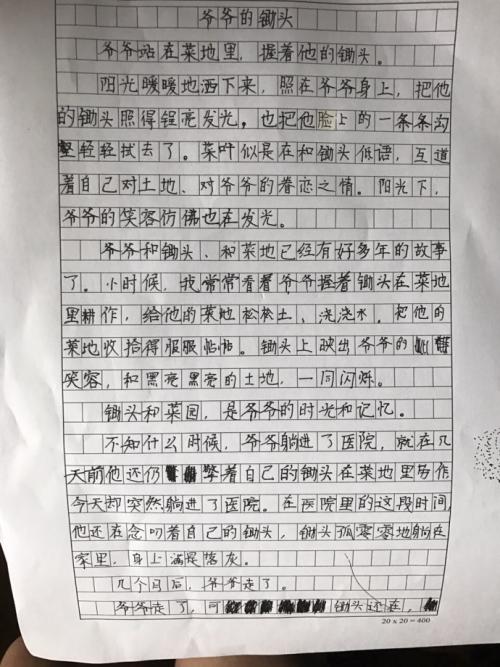 爷爷的锄头
爷爷站在菜地里，握着他的锄头。
阳光暖暖地洒下来，照在爷爷身上，把他
的锄头照得锃亮发光，也把他脸上的一条条沟
壑轻轻拭去了。菜叶似是在和锄头低语，互道
着自己对土地、对爷爷的眷恋之情。阳光下，
爷爷的笑容仿佛也在发光。
爷爷和锄头、和菜地已经有好多年的故事
了。小时候，我常常看着爷爷握着锄头在菜地
里耕作，给他的菜地松松土、浇浇水，把他的
菜地收拾得服服帖帖。锄头上映出爷爷的
笑容，和黑亮黑亮的土地，一同闪烁。
锄头和菜园，是爷爷的时光和记忆。
不知什么时候，爷爷躺进了医院，就在几
天前他还仍擎着自己的锄头在菜地里劳作
今天却突然躺进了医院。在医院里的这段时间，
他还在念叨着自己的锄头，锄头孤零零地躺在
家里，身上满是落灰。
几个月后，爷爷走了。
爷爷走了，可锄头还在，
20 x 20 = 400